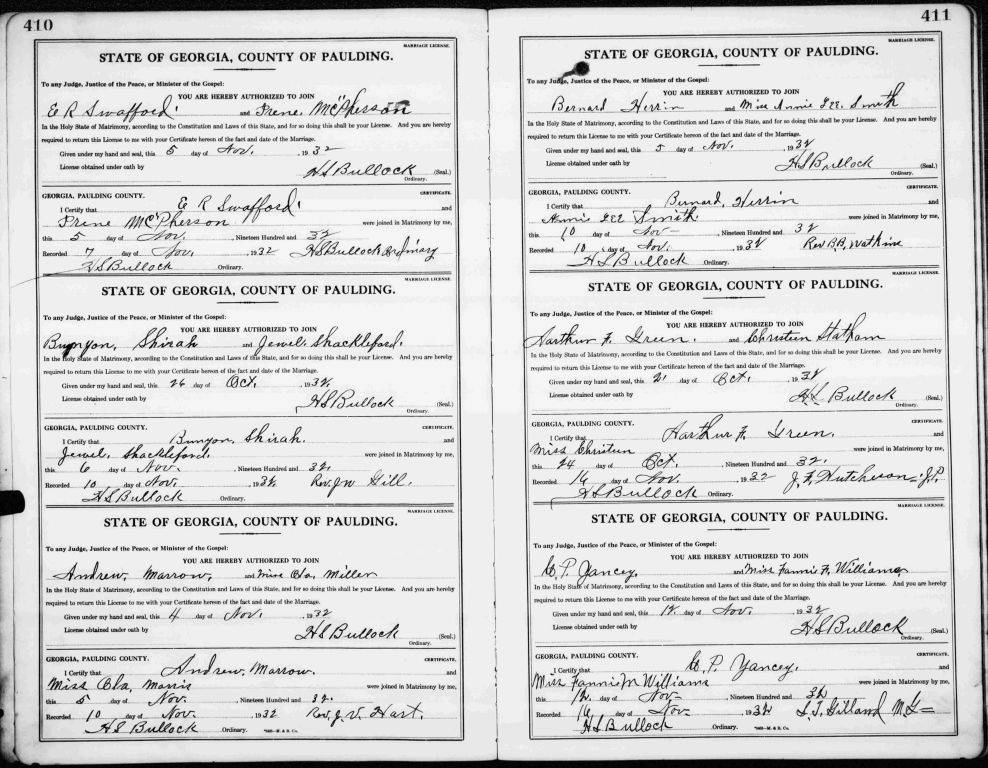 410
MARRIAGE LICENSE.
STATE OF GEORGIA, COUNTY OF PAULDING.
To any Judge, Justice of the Peace, or Minister of the Gospel:
YOU ARE HEREBY AUTHORIZED TO JOIN
E R Swafford and Irene McPherson
In the Holy State of Matrimony, according to the Constitution and Laws of this State, and for so doing this shall be your License. And you are hereby
required to return this License to me with your Certificate hereon of the fact and date of the Marriage.
Given under my hand and seal, this 5 day of Nov. 1932
License obtained under oath by H S Bullock (Seal.)
Ordinary.
GEORGIA, PAULDING COUNTY. CERTIFICATE.
I Certify that E R Swafford and
Irene McPherson were joined in Matrimony by me,
this 5 day of Nov. , Nineteen Hundred and 32
Recorded 7 Nov. 1932 H S Bullock Ordinary
H S Bullock Ordinary.
MARRIAGE LICENSE.
STATE OF GEORGIA, COUNTY OF PAULDING.
To any Judge, Justice of the Peace, or Minister of the Gospel:
YOU ARE HEREBY AUTHORIZED TO JOIN
Bunyon, Shirah and Jewel, Shackleford.
In the Holy State of Matrimony, according to the Constitution and Laws of this State, and for so doing this shall be your License. And you are hereby
required to return this License to me with your Certificate hereon of the fact and date of the Marriage.
Given under my hand and seal, this 26 day of Oct. 1932,
License obtained under oath by H S Bullock (Seal.)
Ordinary.
GEORGIA, PAULDING COUNTY. CERTIFICATE.
I Certify that Bunyon, Shirah. and
Jewel, Shackleford. were joined in Matrimony by me,
this 6 day of Nov. , Nineteen Hundred and 32.
Recorded 10 day of Nov. 1932 Rev. J W Gill.
H S Bullock Ordinary.
MARRIAGE LICENSE.
STATE OF GEORGIA, COUNTY OF PAULDING.
To any Judge, Justice of the Peace, or Minister of the Gospel:
YOU ARE HEREBY AUTHORIZED TO JOIN
Andrew, Marrow, and Miss Ola, Miller
In the Holy State of Matrimony, according to the Constitution and Laws of this State, and for so doing this shall be your License. And you hereby
required to return this License to me with your Certificate hereon of the fact and date of the Marriage.
Given under my hand and seal, this 4 day of Nov. 1932
License obtained under oath by H S Bullock (Seal.)
Ordinary.
GEORGIA, PAULDING COUNTY. CERTIFICATE.
I Certify that Andrew, Marrow. and
Miss Ola, Morris were joined in Matrimony by me,
this 5 day of Nov. , Nineteen Hundred and 32.
Recorded 10 day of Nov. 1932 Rev. J. V. Hart.
H S Bullock Ordinary.
411
MARRIAGE LICENSE.
STATE OF GEORGIA, COUNTY OF PAULDING.
To any Judge, Justice of the Peace, or Minister of the Gospel:
YOU ARE HEREBY AUTHORIZED TO JOIN
Bernard Herrin and Miss Annie Lee. Smith
In the Holy State of Matrimony, according to the Constitution and Laws of this State, and for so doing this shall be your License. And you are hereby
required to return this License to me with your Certificate hereon of the fact and date of the Marriage.
Given under my hand and seal, this 5 day of Nov. 1932
License obtained under oath by H S Bullock (Seal.)
Ordinary.
GEORGIA, PAULDING COUNTY. CERTIFICATE.
I Certify that Bernard, Herrin and
Annie Lee Smith were joined in Matrimony by me,
this 10 day of Nov- , Nineteen Hundred and 32
Recorded 10 day of Nov. 1932 Rev B.B. Watkins
H S Bullock Ordinary.
MARRIAGE LICENSE.
STATE OF GEORGIA, COUNTY OF PAULDING.
To any Judge, Justice of the Peace, or Minister of the Gospel:
YOU ARE HEREBY AUTHORIZED TO JOIN
Aarthur F. Green. and Christeen Statham
In the Holy State of Matrimony, according to the Constitution and Laws of this State, and for so doing this shall be your License. And you are hereby
required to return this License to me with your Certificate hereon of the fact and date of the Marriage.
Given under my hand and seal, this 21 day of Oct. 1932
License obtained under oath by H S Bullock (Seal.)
Ordinary.
GEORGIA, PAULDING COUNTY. CERTIFICATE.
I Certify that Aarthur F. Green. and
Miss Christeen were joined in Matrimony by me,
this 24 day of Oct. , Nineteen Hundred and 32.
Recorded 16 day of Nov. 1932 J. F. J.P.
H S Bullock Ordinary.
MARRIAGE LICENSE.
STATE OF GEORGIA, COUNTY OF PAULDING.
To any Judge, Justice of the Peace, or Minister of the Gospel:
YOU ARE HEREBY AUTHORIZED TO JOIN
P. Yancey. and Miss Fannie Williams
In the Holy State of Matrimony, according to the Constitution and Laws of this State, and for so doing this shall be your License. And you are hereby
required to return this License to me with your Certificate hereon of the fact and date of the Marriage.
Given under my hand and seal, this 12 day of Nov. 1932
License obtained under oath by H S Bullock (Seal.)
Ordinary.
GEORGIA, PAULDING COUNTY. CERTIFICATE.
I Certify that P. Yancey. and
Miss Fannie M Williams were joined in Matrimony by me,
this 12. day of Nov- , Nineteen Hundred and 32
Recorded 16 day of Nov- 1932 Gilland M G-
H S Bullock Ordinary.